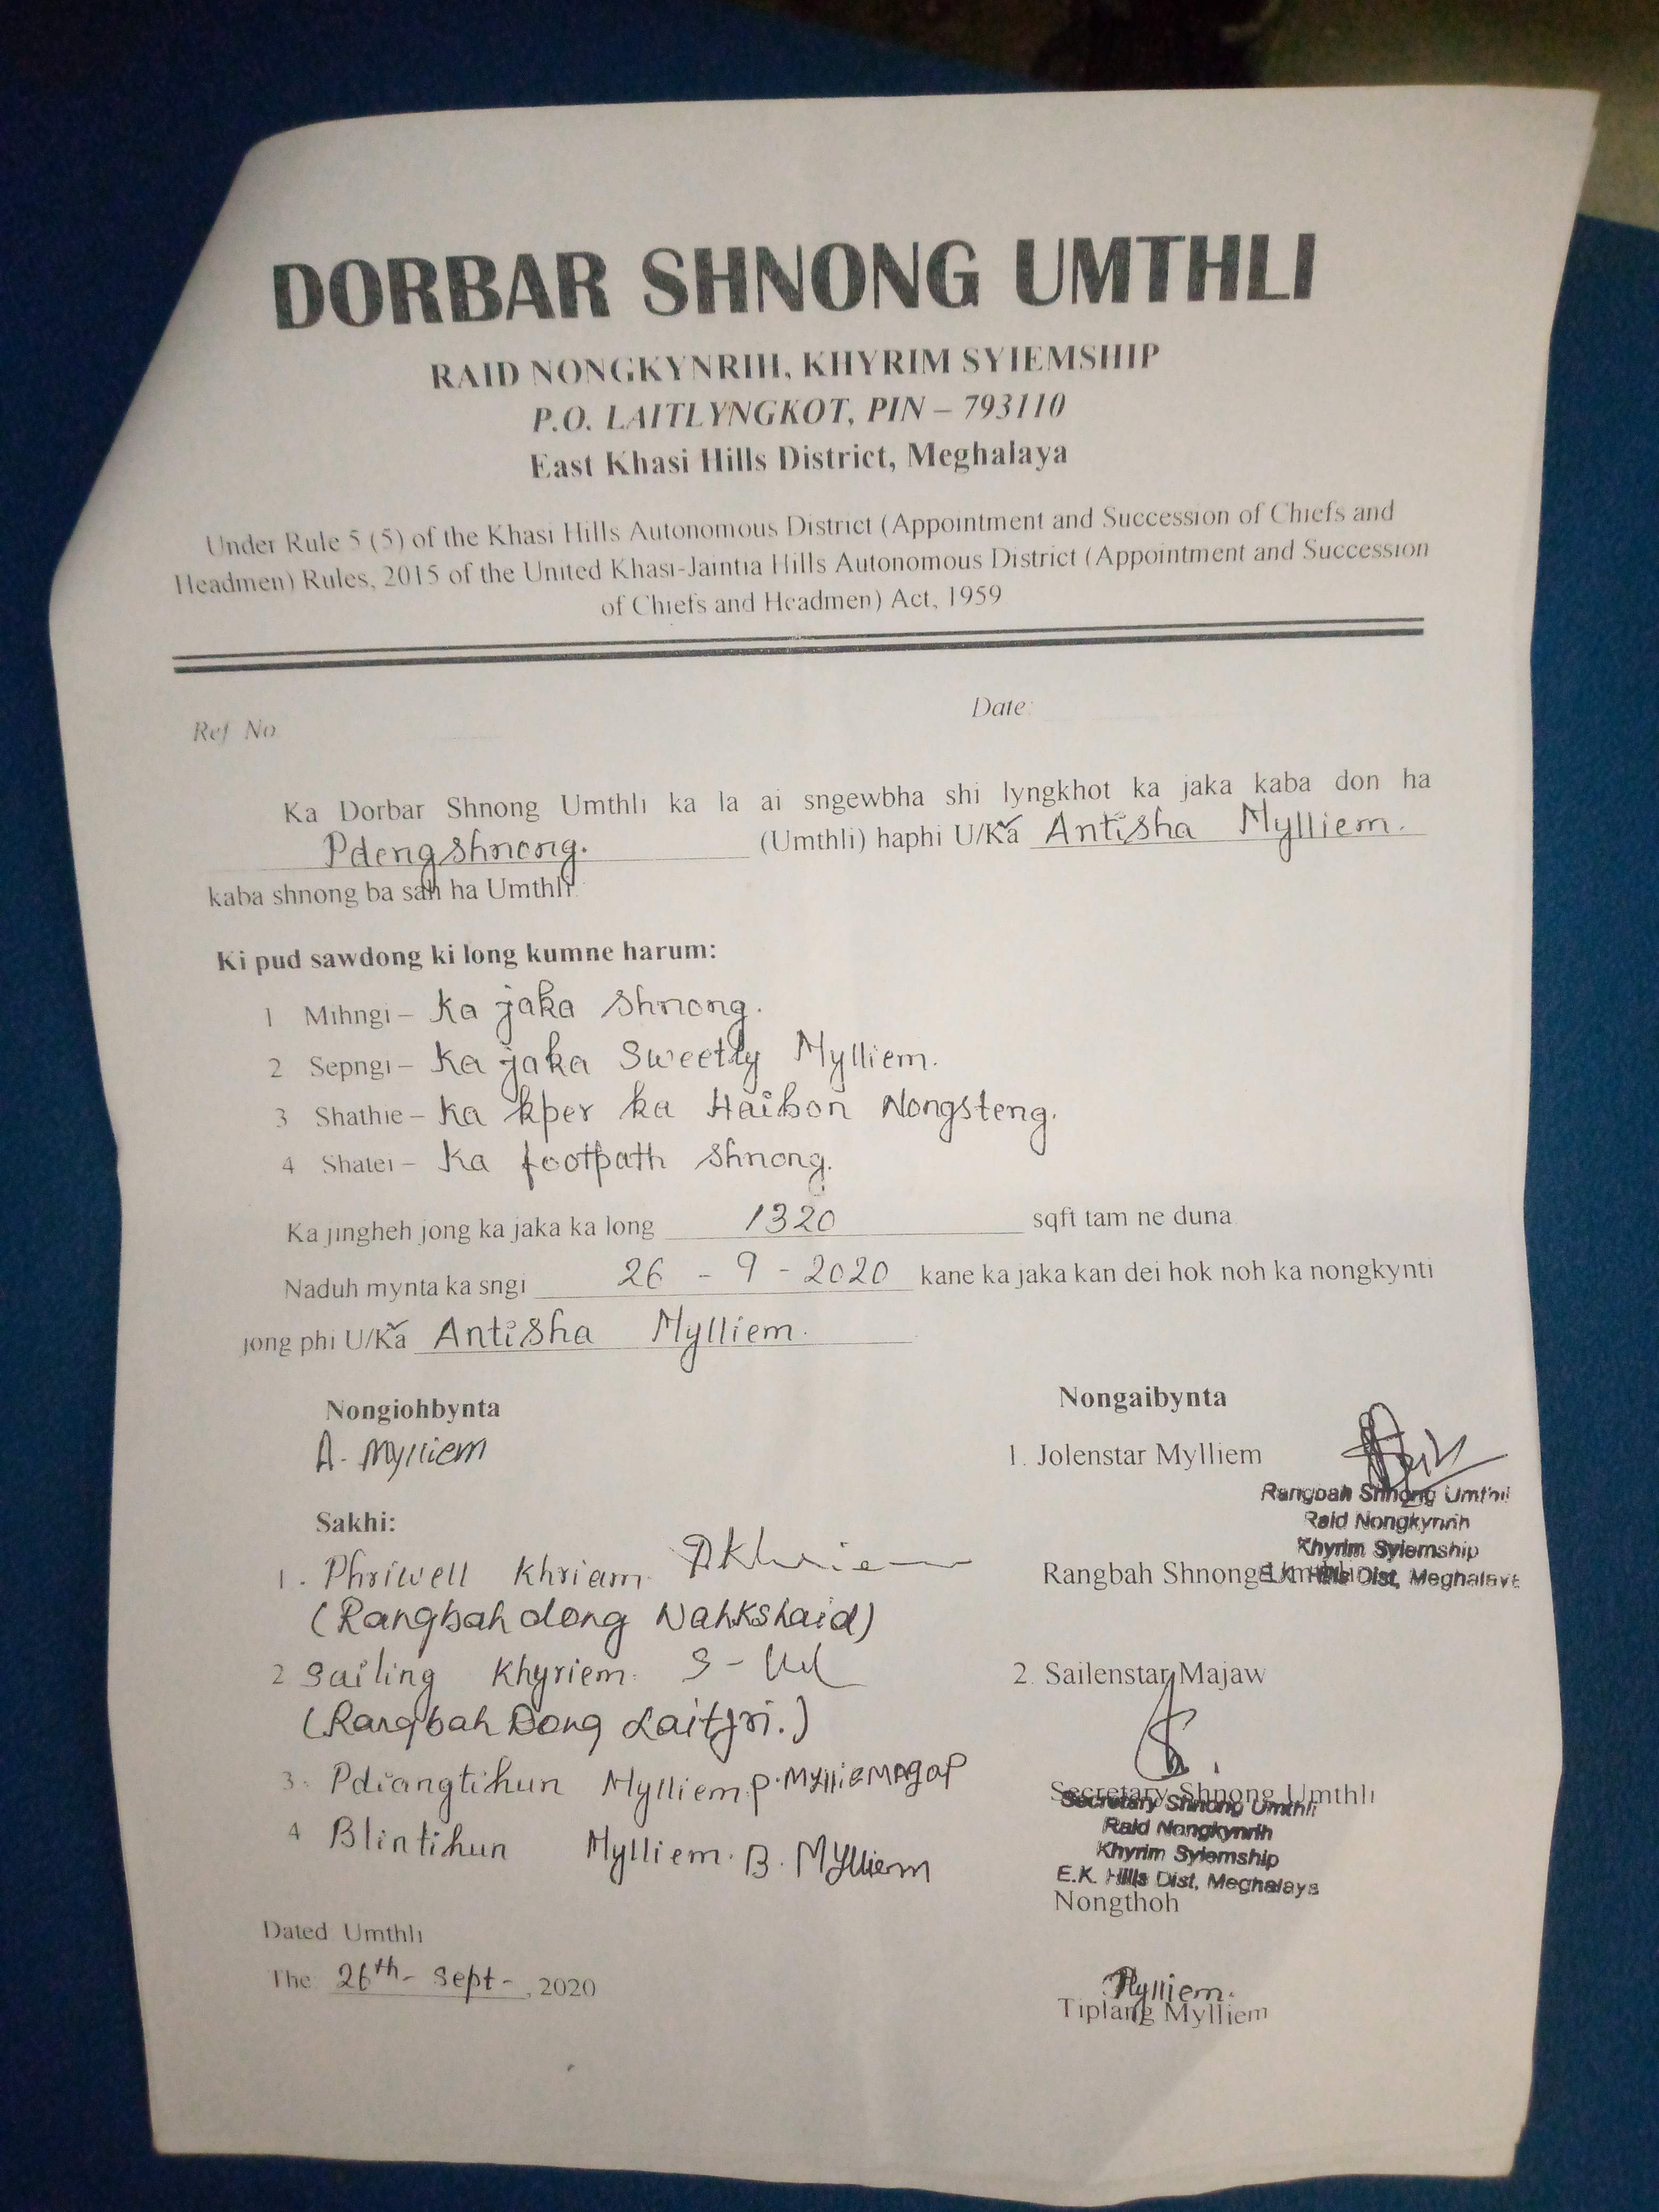 DORBAR SHNONG UMTHLI
RAID NONGKYNRIH, KHYRIM SYIEMSHIP
P.O. LAITLYNGKOT, PIN – 793110
East Khasi Hills District, Meghalaya
Under Rule 5 (5) of the Khasi Hills Autonomous District (Appointment and Succession of Chiefs and
Headmen) Rules, 2015 of the United Khasi-Jaintia Hills Autonomous District (Appointment and Succession
of Chiefs and Headmen) Act, 1959
Ref No
Date:
Ka Dorbar Shnong Umthli ka la ai sngewbha shi lyngkhot ka jaka kaba don ha
Pdengshnong. (Umthli) haphi U/Ka Antisha Mylliem.
kaba shnong ba sah ha Umthli.
Ki pud sawdong ki long kumne harum:
1 Mihngi – Ka jaka shnong.
2 Sepngi – Ka jaka Sweetly Mylliem.
3 Shathie – Ka kper ka Haibon Nongsteng.
4 Shatei – Ka footpath shnong.
Ka jingheh jong ka jaka ka long 1320 sqft tam ne duna
Naduh mynta ka sngi 26 - 9 - 2020 kane ka jaka kan dei hok noh ka nongkynti
jong phi U/Ka Antisha Mylliem.
Nongiohbynta
A. Mylliem
Sakhi:
1. Phriwell Khriam
(Rangbah dong Nahkshaid)
2 Sailing Khyriem.
(Rangbah Dong Laitjri.)
3. Pdiangtihun Mylliem
4 Blintihun Mylliem. B. Mylliem
Dated Umthli
The 26th- Sept-, 2020
Nongaibynta
1. Jolenstar Mylliem
Rangbah Shnong Umthli
Raid Nongkynrih
Khyrim Syiemship
E.K. Hills Dist, Meghalaya
Rangbah Shnong Umthli
2. Sailenstar Majaw
Secretary Shnong Umthli
Secretary Shnong Umthli
Raid Nongkynrih
Khyrim Syiemship
E.K. Hills Dist, Meghalaya
Nongthoh
Mylliem.
Tiplang Mylliem